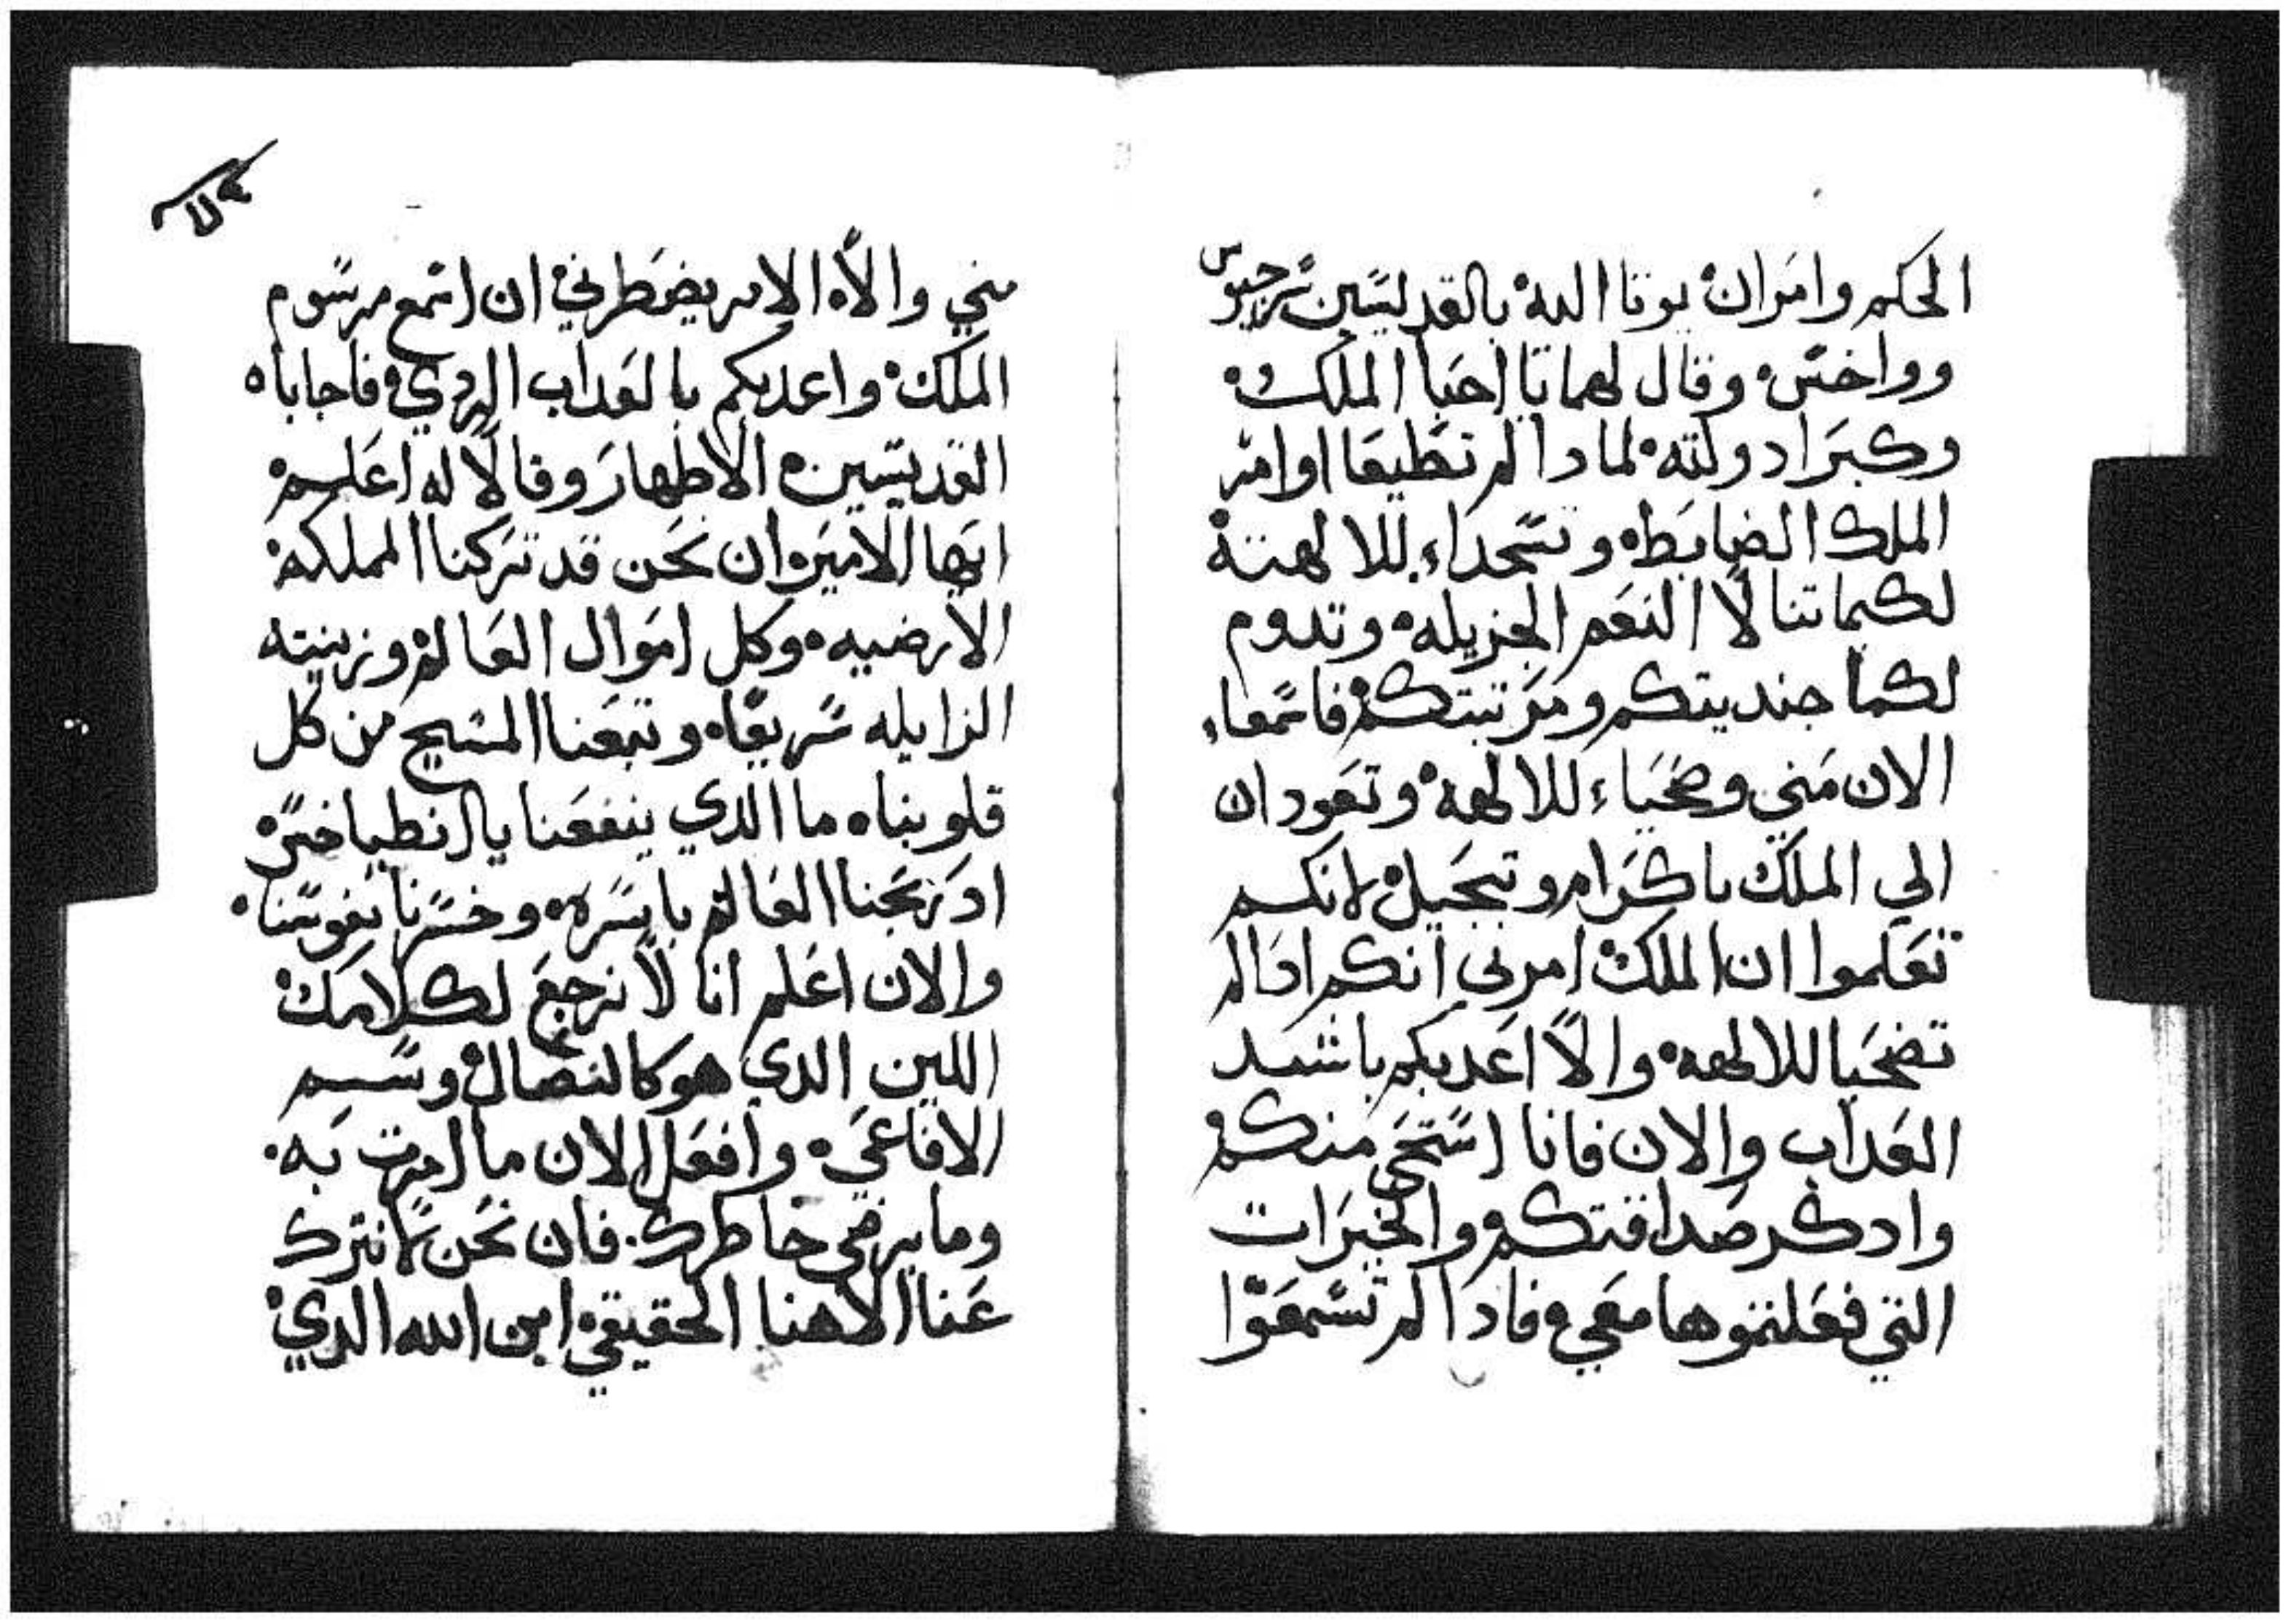 الحكم وامران يوتا اليه بالقديسين سرجيوس
وواخس، وقال لهما يا احبا الملك،
وكبرا دولته، لمادا لم تطيعا اوامر
الملك الضابطه وتسجداء للالهتة
لكيما تنالا النعم الجزيله، وتدوم
لكما جنديتكم ومرتبتكم فاسمعاء
الان مني وضحياء للالهه، وتعودان
الي الملك باكرام وتبجيل لانكم
تعلموا ان الملك امرني انكم ادا لم
تضحيا للالهه، والا اعدبكم باشد
العداب والان فانا استحي منكم
وادكر صداقتكم والخيرات
التي فعلتموها معي، فادا لم تسمعوا
مني والا، الامر يضطرني ان اسمع مرسوم
الملك، واعدبكم بالعداب الردي، فاجاباه
القديسين، الاطهار وقالا له اعلم
ايها الامير، ان نحن قد تركنا المملكة
الارضيه، وكل اموال العالم وزينته
الزايله سريعا، وتبعنا المسيح من كل
قلوبنا، ما الدي ينفعنا يا انطياخس
اد ربحنا العالم باسره، وخسرنا نفوسنا،
والان اعلم انا لا نرجع لكلامك
اللين الدي هو كالنصال وسم
الافاعي، وافعل الان ما امرت به،
وما يرضي خاطرك. فان نحن لا نترك
عنا الاهنا الحقيقي ابن الله الدي